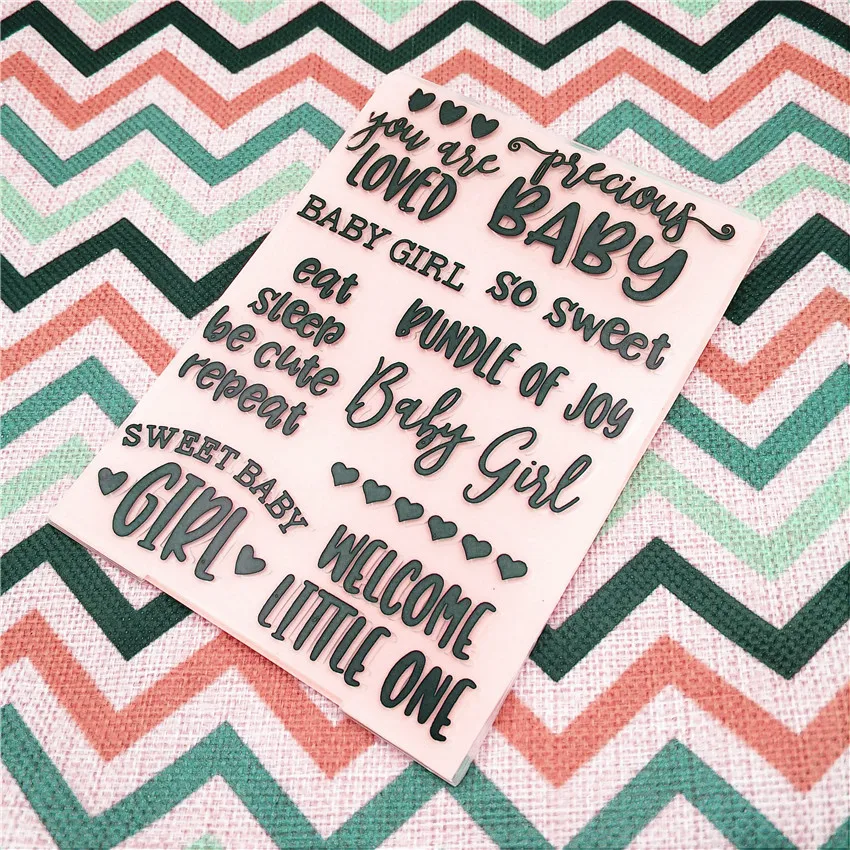 you are
LOVED
precious
BABY
BABY GIRL
so sweet
eat
sleep
be cute
repeat
BUNDLE OF JOY
Baby Girl
SWEET BABY
GIRL
WELCOME
LITTLE ONE